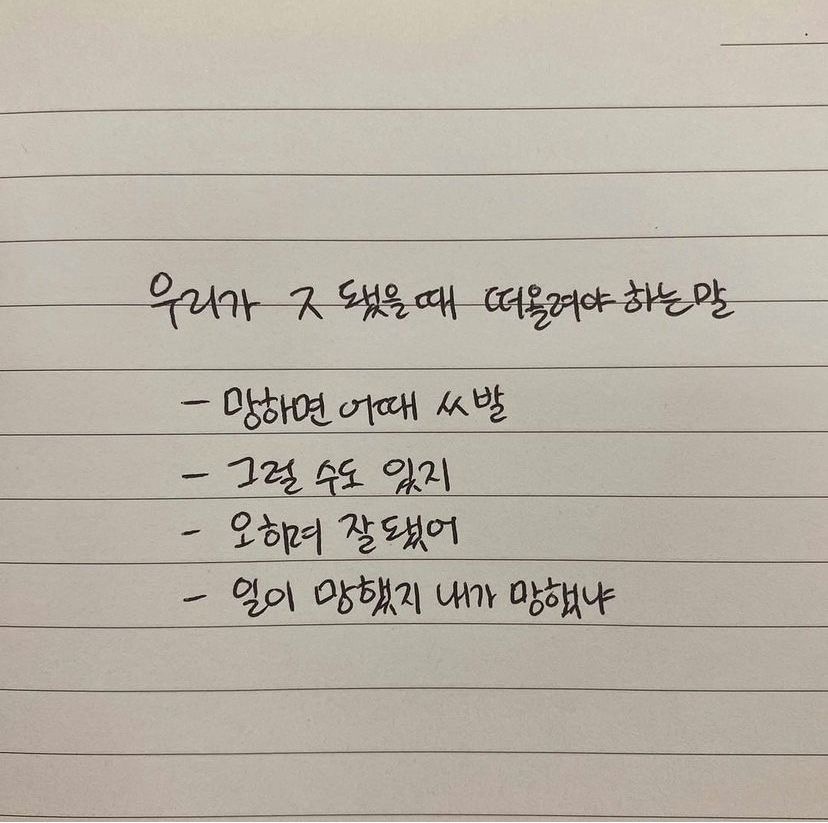 우리가 ㅈ 됐을 때 떠올려야 하는 말
- 망하면 어때 씨발
- 그럴 수도 있지
- 오히려 잘됐어
- 일이 망했지 내가 망했냐